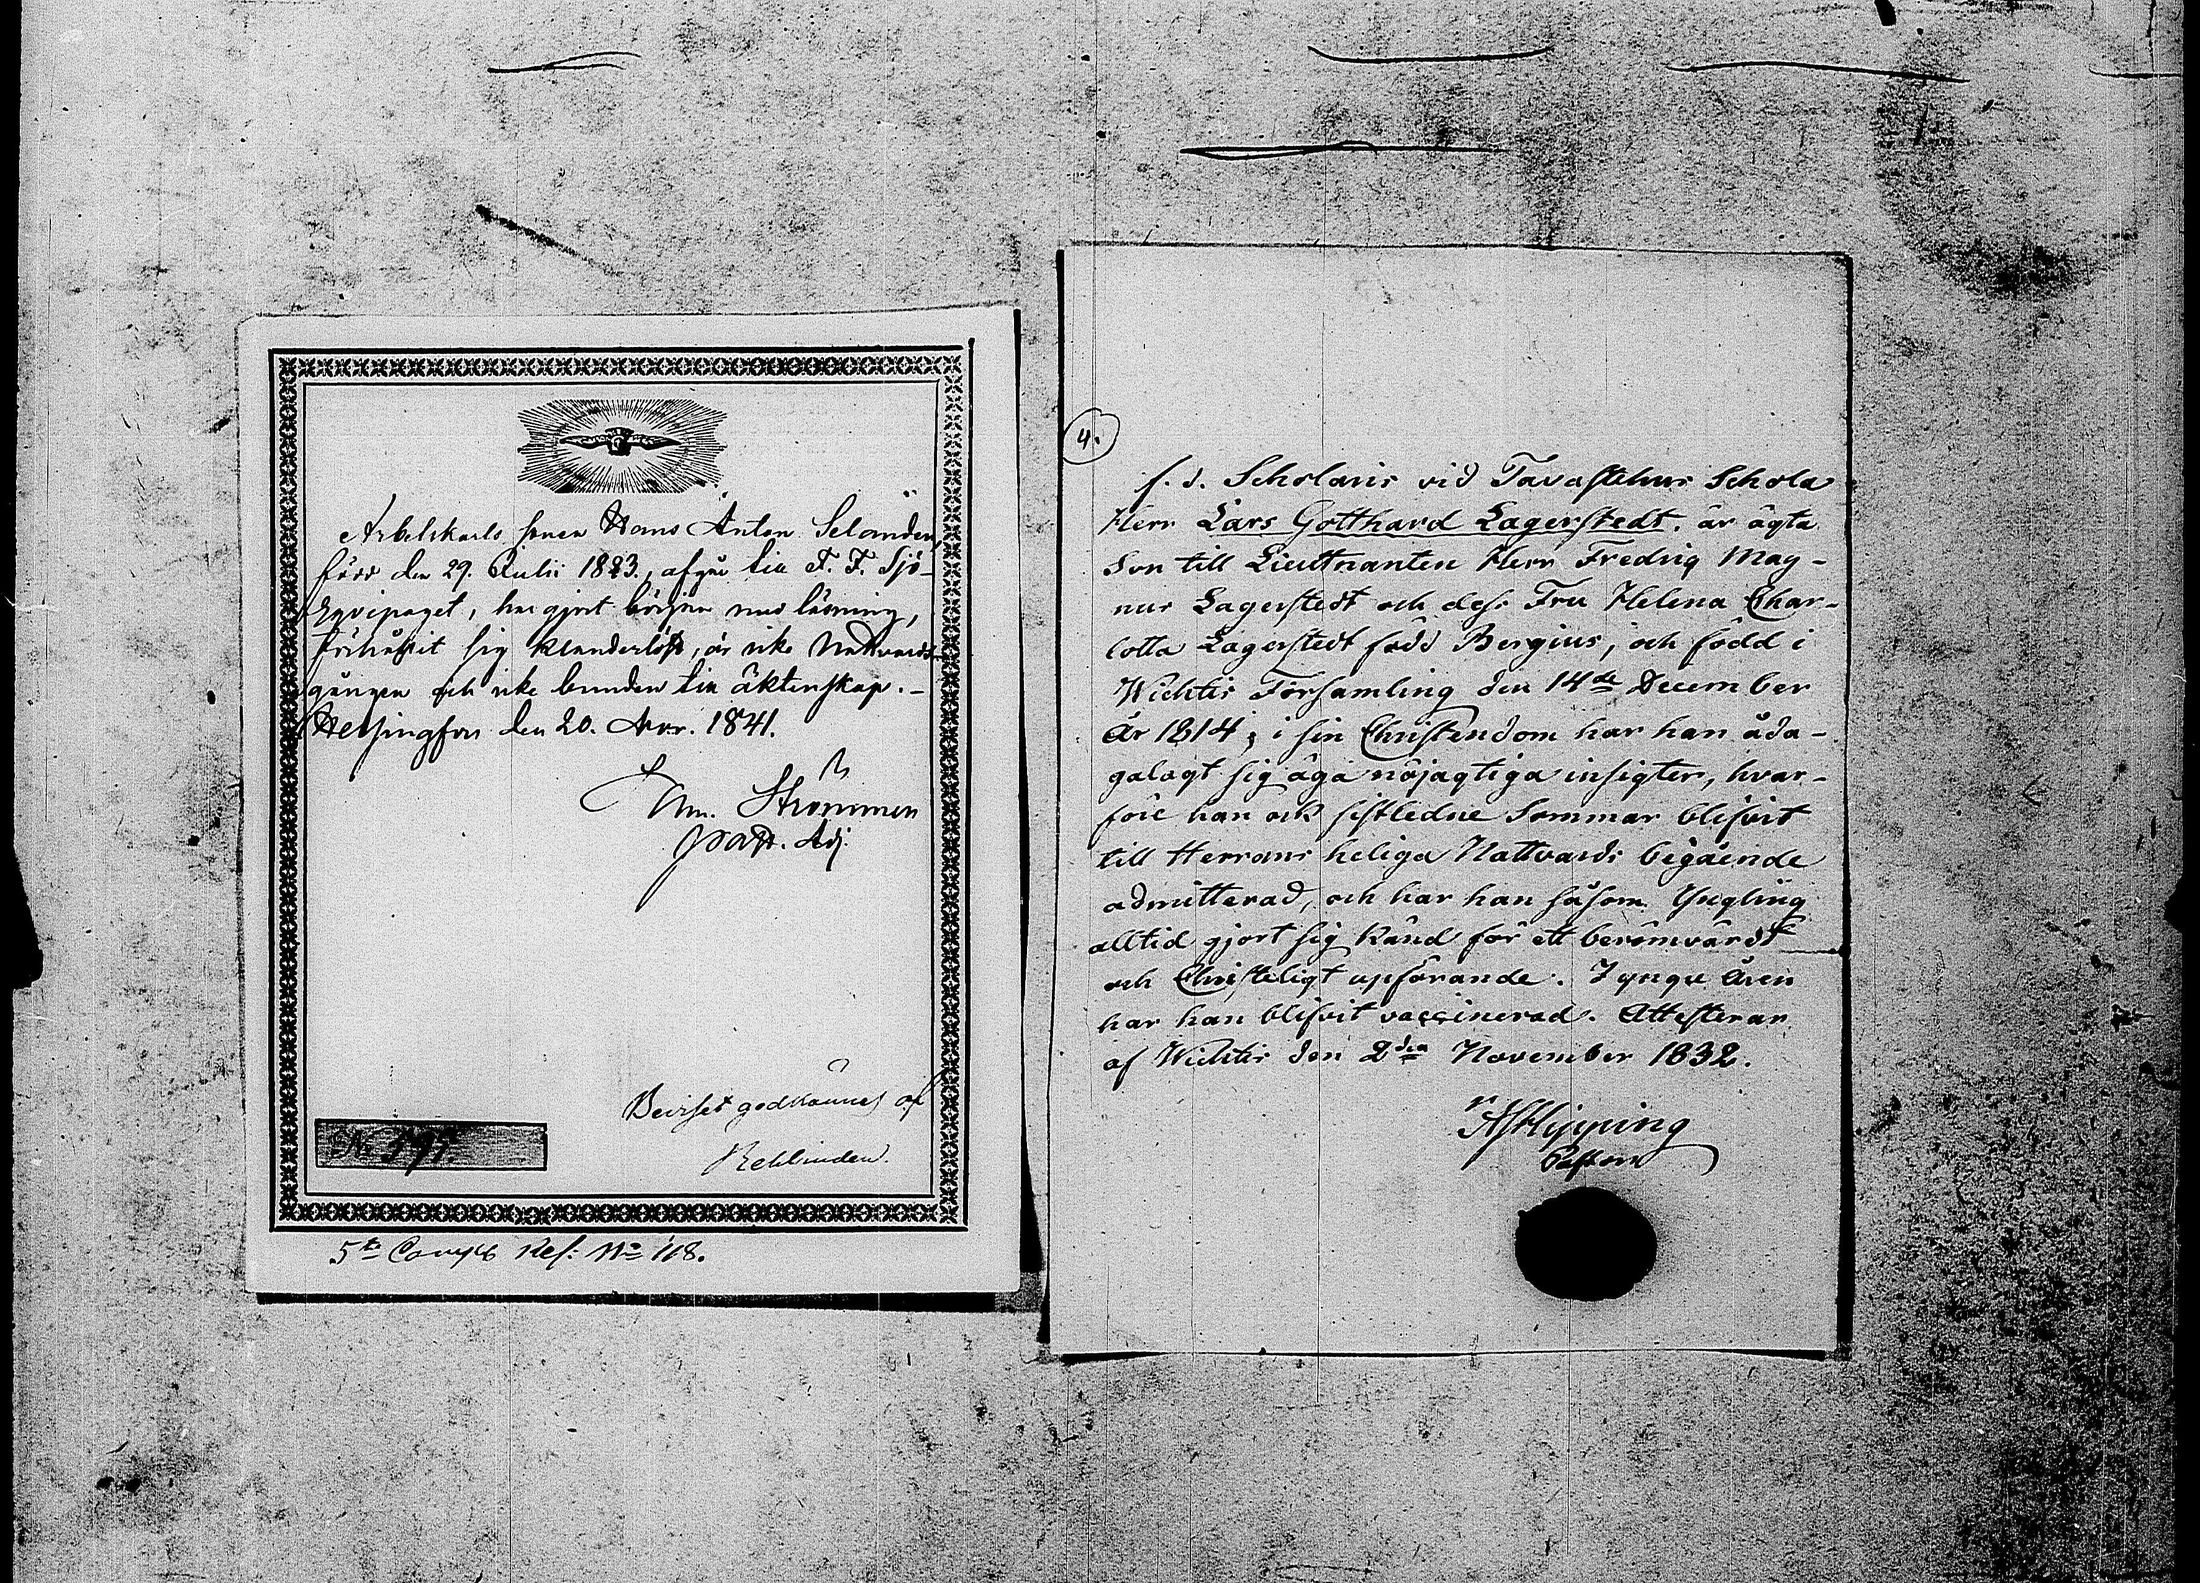 Arbetskarls sonen Hans Anton Selander,
född den 29. Julii 1823., afgår till F. F. Sjö-
Eqvipaget, har gjort början med läsning,
förhållit sig klanderlöst, är icke Nattvards-
gången och icke bunden till äktenskap. -
Helsingfors den 20. Nov. 1841.
Strömmer
past. Adj.
Beviset godkännes af
Rehbinder
No 595.
5te Comp Ref: No 118.
4.
f. d. Scholaris vid Tavastehus Schola
Herr Lars Gotthard Lagerstedt, är ägta
Son till Lieutnanten Herr Fredriq Mag-
nus Lagerstedt och dess Fru Helena Char-
lotta Lagerstedt född Bergius, och född i
Wichtis Församling den 14de December
År 1814; i sin Christendom har han åda-
galagt sig äga nöjagtiga insigter, hvar-
före han ock sistledne Sommar blifvit
till Herrans heliga Nattvards begående
admitterad, och har han såsom Yngling
alltid gjort sig känd för ett berömvärdt
och Christeligt upförande. I yngre Åren
har han blifvit vaccinerad. Attesterar
af Wichtis den 2den November 1832.
Hipping
Pastor